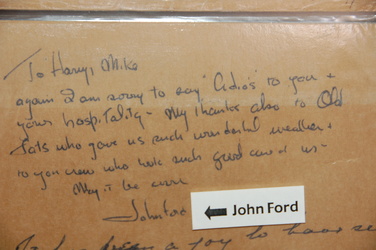 To Harry & Mike
again I am sorry to say "Adios" to you +
your hospitality - My thanks also to Old
who gave us such wonderful weather +
to you crew who took such good care of us -
May it be
John Ford
John Ford
to have